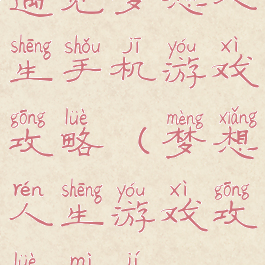 遇见梦想人
shēng shǒu jī yóu xì
生手机游戏
gōng lüè mèng xiǎng
攻略（梦想
rén shēng yóu xì gōng
人生游戏攻
lüè mì jí